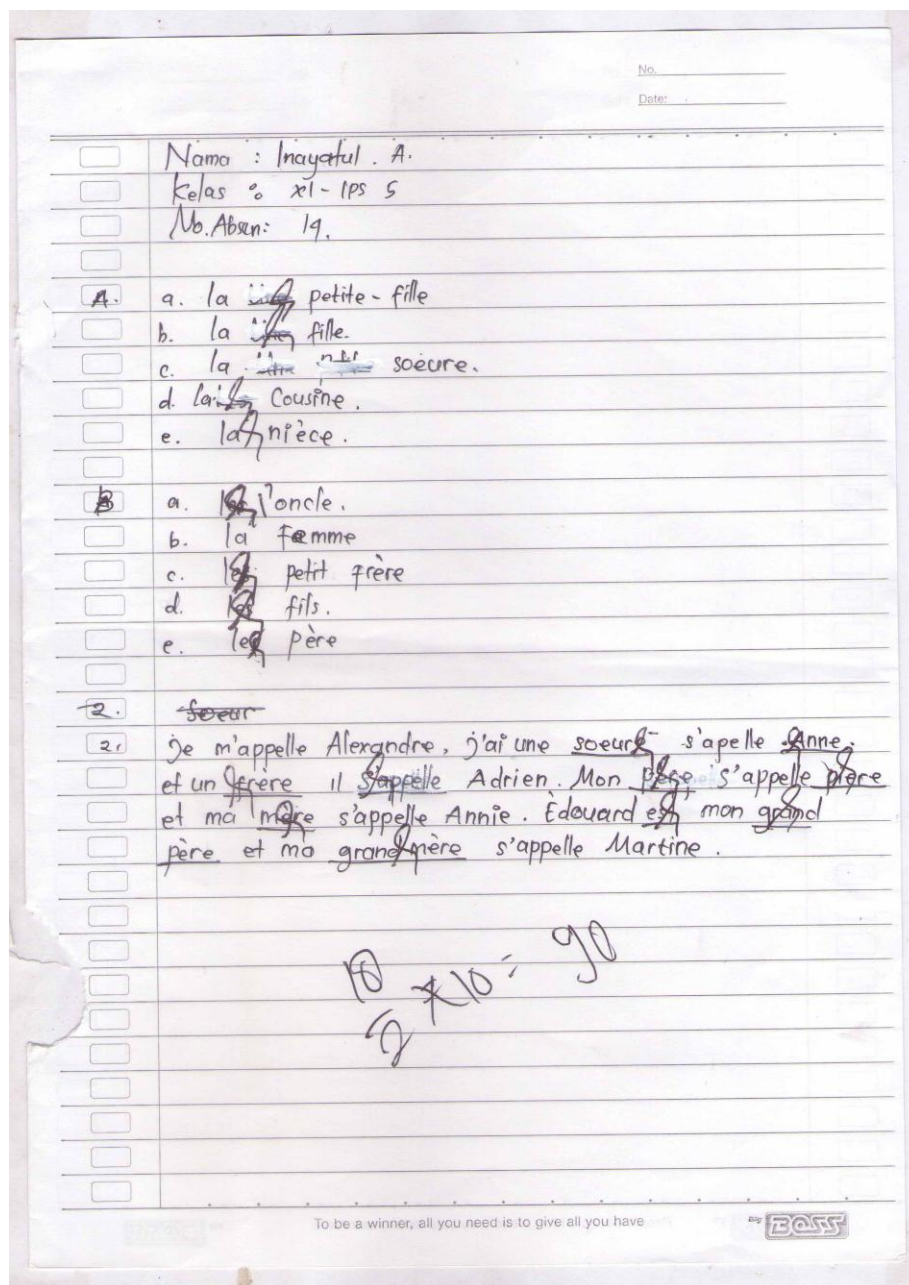 No.
Date:
Nama : Inayatul . A.
Kelas : XI - IPS 5
No. Absen: 19.
A. a. la petite - fille
b. la fille.
c. la soeure.
d. la Cousine.
e. la nièce.
B a. l'oncle.
b. la Femme
c. le petit frère
d. les fils.
e. le père
2. soeur
2. je m'appelle Alexandre, j'ai une soeur s'apelle Anne.
et un frère il s'appelle Adrien. Mon père s'appelle pière
et ma mère s'appelle Annie. Èdouard est mon grand
père et ma grand mère s'appelle Martine.
18
2 x 10 = 90
To be a winner, all you need is to give all you have
By BOSS